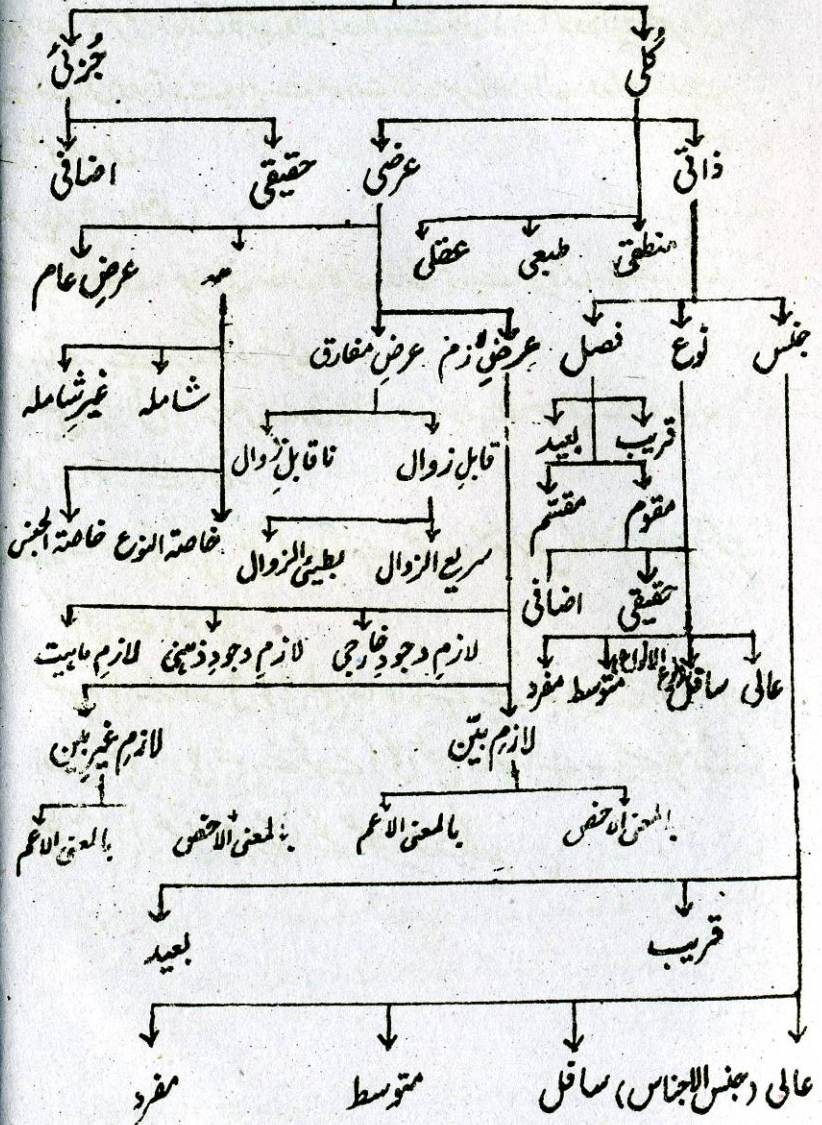 کلی جزئی
ذاتی عرضی حقیقی اضافی
منطقی طبعی عقلی عرضِ عام
جنس نوع فصل عرضِ لازم عرضِ مفارق
شاملہ غیر شاملہ
قریب بعید قابلِ زوال ناقابلِ زوال
مقوم مقسّم
سریع الزوال بطیئ الزوال خاصۃ النوع خاصۃ الجنس
حقیقی اضافی
لازمِ وجودِ خارجی لازمِ وجودِ ذہنی لازمِ ماہیت
عالی سافل (نوع الانواع) متوسط مفرد
لازمِ بیّن لازمِ غیر بیّن
بالمعنی الاخص بالمعنی الاعم بالمعنی الاخص بالمعنی الاعم
قریب بعید
عالی (جنس الاجناس) سافل متوسط مفرد